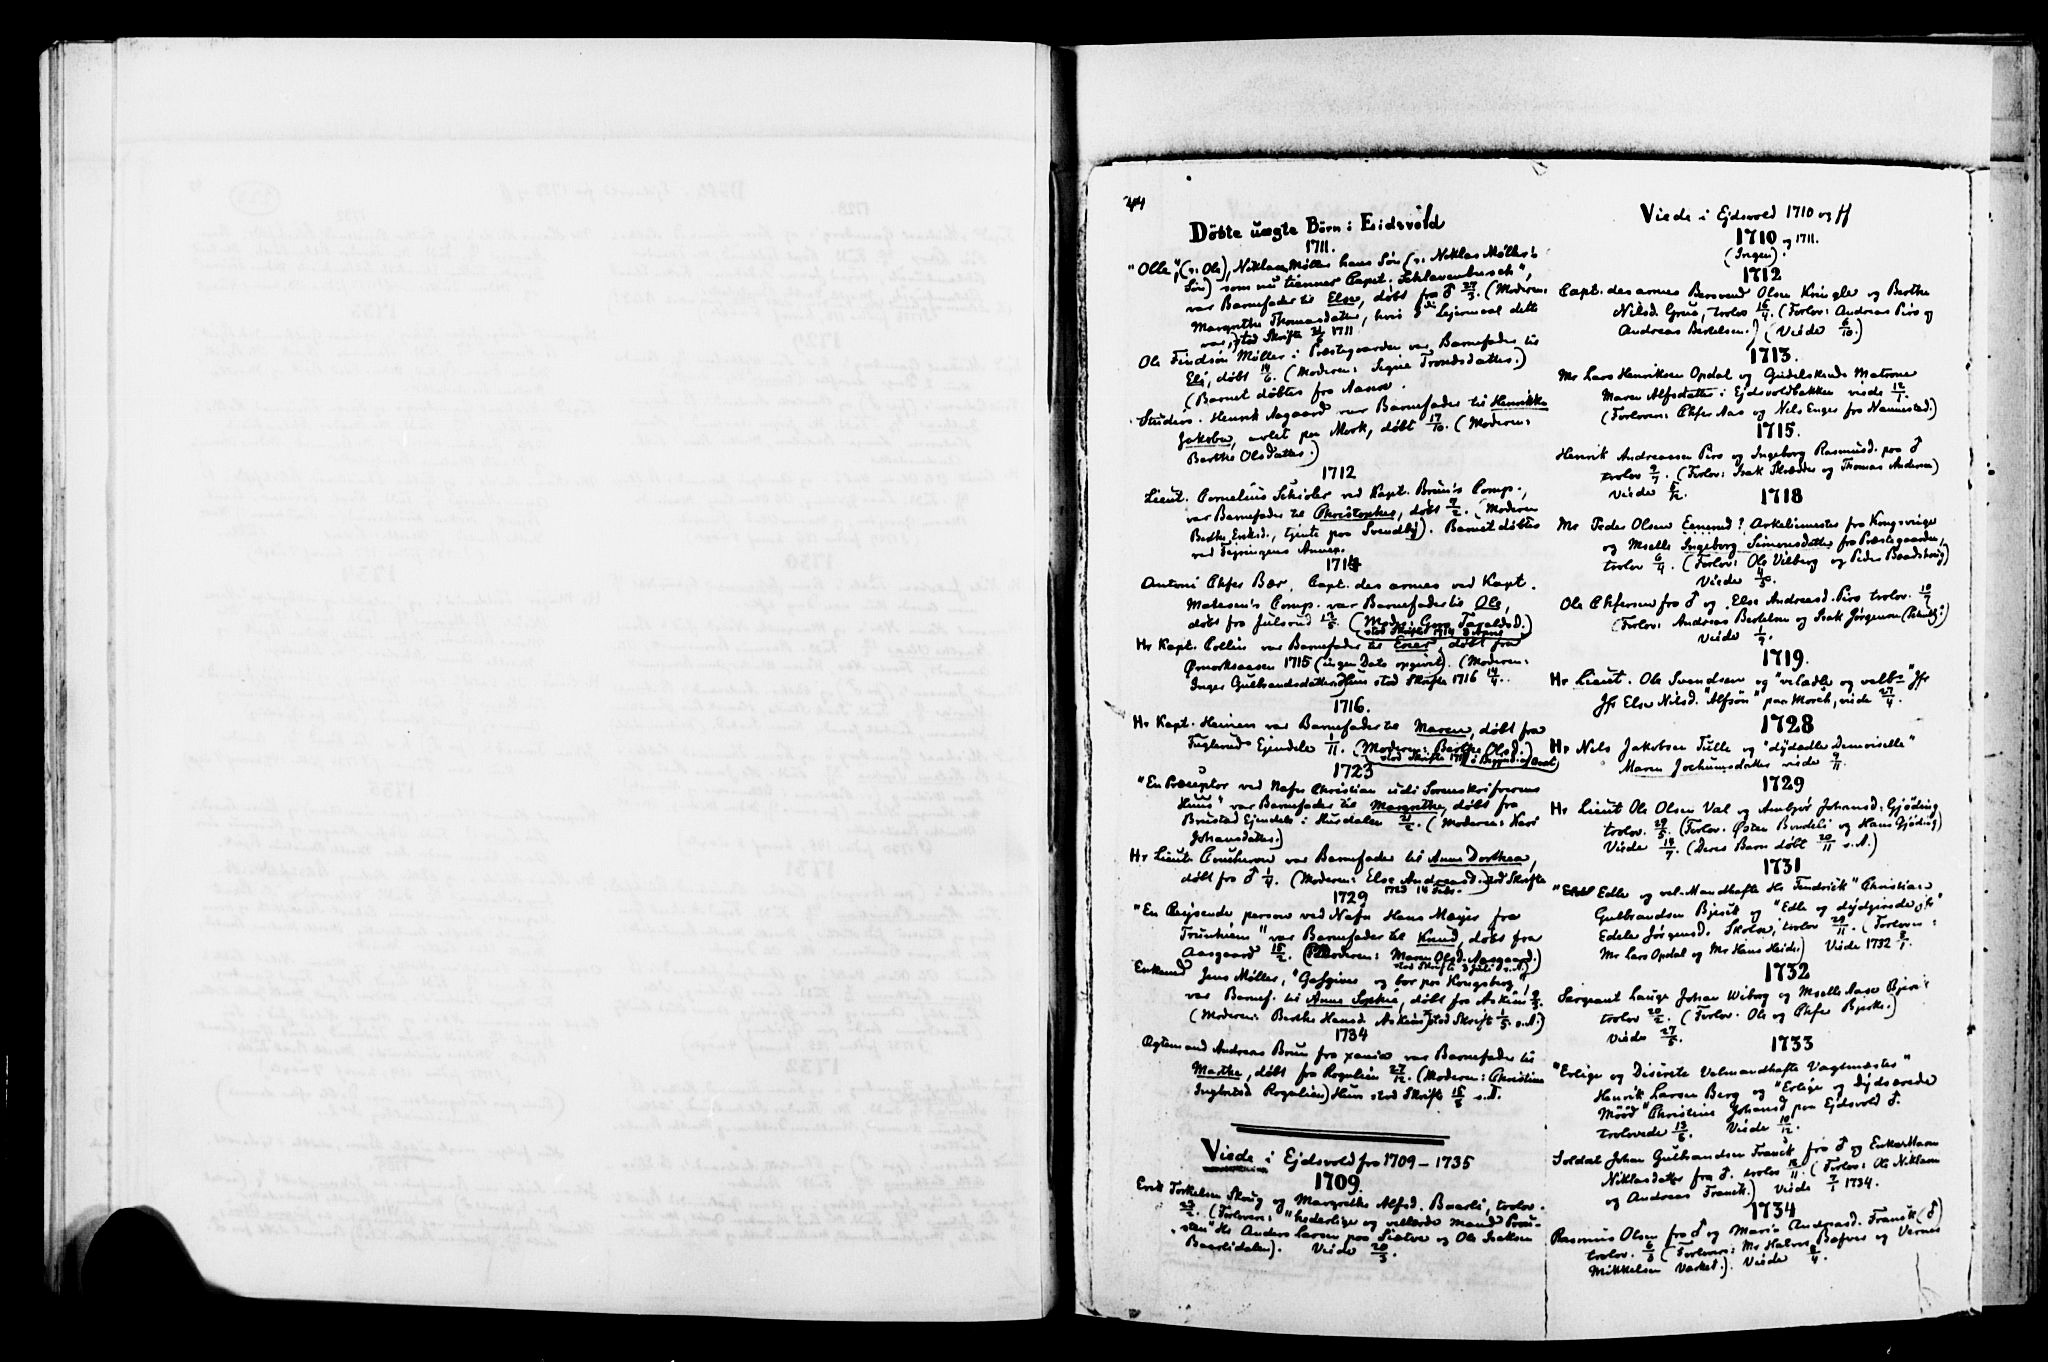 44
Döbte uægte Börn i Eidsvold
1711.
"Olle", (ɔ: Ole), Niklas Møller hans Søn (ɔ: Niklas Møllers
Søn) som nu tienner Capt. Schlavenbusch",
var Barnefader til Else, døbt fra ♂ 27/3. (Moderen:
Margrethe Thomasdatter, hvis 3die Lejermaal dette
var, stod Skrifte 21/6 1711
Ole Findsøn Møller i Præstegaarden var Barnefader til
Eli, døbt 14/6. (Moderen: Signe Trondsdatter.)
(Barnet døbtes fra Aanæs.
Studios. Henrik Aagaard var Barnefader til Henrikka
Jakoba, avlet paa Mork, døbt 17/10. (Moderen:
Berthe Olsdatter.)
1712
Lieut. Cornelius Schiøler ved Kapt. Bruns Comp.,
var Barnefader til Christopher, døbt 7/2. (Moderen
Berthe Eriksd., tjente paa Svendby). Barnet døbtes
ved Feyringens Annex.
1714
Antoni Chfer Bær, Capt. des armes ved Kapt.
Matesen's Comp. var Barnefader til Ole,
døbt fra Julsrud 13/5. (Mod: Guro Taraldsd.)
stod Skrifte 1714 3 Aprs
Hr Kapt. Collin var Barnefader til Ener, døbt fra
Ørnorksaasen 1715 (ingen Dato opgivet). (Moderen:
Inger Gulbrandsdatter) Hun stod Skrifte 1716 14/4.
1716.
Hr Kapt. Heinen var Barnefader til Maren, døbt fra
Fuglerud Ejendele 1/11. (Moderen: Berthe Olsd.)
1723
"En Præceptor ved Nafn Christian udi Sorenskrifverens
Huus" var Barnefader til Margrethe, døbt fra
Brustad Ejendele i Husdalen 21/2. (Moderen: Kari
Johansdatter.)
Hr Lieut. Coucheron var Barnefader til Anne Dorthea,
døbt fra ♂ 1/4. (Moderen: Else Andreasd. stod Skrifte
1723 14 Febr.
1729
"En Reijsende person ved Nafn Hans Meyer fra
Trunhiem" var Barnefader til Knud, døbt fra
Aasgaard 15/2. (Moderen: Maren Olsd. Aasgaard.)
stod Skrifte 3 Juli s. A.)
Enkemd Jens Møller, "Gasgiver og bor paa Kongsberg",
var Barnef. til Anne Sophie, døbt fra Askim
(Moderen: Berthe Hansd. Askim) stod Skrift 1/5 s.A.)
1734
Ogtemand Andreas Brun fra xania var Barnefader til
Marthe, døbt fra Rogulien 27/12. (Moderen: Christine
Ingbretsd Rogulien) Hun stod Skrifte 15/5 s.A.
Viede i Ejdsvold fra 1709–1735
1709.
Erik Torkelsen Skrug og Margrethe Alfsd. Baarli, trolov.
23/2. (Forlovere: "hederlige og vellærde mand Prou-
sten" Hr Anders Larsen paa Sletve og Ole Isaksen
Baarlidalen). Viede 20/3.
Viede i Ejdsvold 1710 og ff
1710 og 1711.
(Ingen).
1712
Capt. des armes Bersvend Olsen Kringle og Berthe
Nilsd. Grue, trolov 16/4. (Forlov: Andreas Piro og
Andreas Bertelsen.) (Viede 6/10.)
1713.
Mr Lars Henriksen Opdal og Gudelskende Matrone
Maren Alfsdatter i Ejdsvoldbakken viede 12/1.
(Forlovere: Chfer Aas og Nils Enger fra Nannestad.)
1715.
Henrik Andreassen Piro og Ingeborg Rasmusd. paa ♂
trolov 2/7. (Forlov: Isak Skræder og Thomas Andersen)
Viede 5/12.
1718
Mr Peder Olsen Eenerud? Arkelimester fra Kongsvinger
og Mselle Ingeborg Simensdatter fra Præstegaarden,
trolov 6/4. (Forlov: Ole Vilberg og Peder Baadshaug)
Viede 4/5.
Ole Chfersen fra ♂ og Else Andreasd. Piro trolov. 10/7
(Forlov: Andreas Bertelsen og Isak Jørgensen (Schultz?)
Viede 1/9.
1719.
Hr Lieut. Ole Svendsen og "veladle og velb-" Jfr
Jfr Else Nilsd. "Alfsøn" paa Morch, viede 27/4.
1728
Hr Nils Jakobsen Tulle og "dydædle Demoiselle"
Maren Jochumsdatter viede 9/11.
1729
Hr Lieut Ole Olsen Val og Ambjør Johansd. Gjøding
trolov. 29/5. (Forlov. Østen Bundeli og Hans Gjøding)
Viede 14/7. (Deres Barn døbt 20/11 s.A.)
1731
"Edle og vel-Mandhafte Hr Fendrick" Christian
Gulbrandsen Bjerck og "Edle og dydzirede Jfr"
Edele Jørgensd. Skolse, trolov 29/11. (Forlovere:
Mr Lars Opdal og Mr Hans Heide) Viede 1732 2/1.
1732
Sergeant Lauge Johan Wiborg og Mselle Aase Bjerke
trolov 20/2. (Forlov. Ole og Chfer Bjerke.)
Viede 27/5.
1733
"Erlige og Discrete Velmandhafte Vagtmester"
Henrik Larsen Berg og "Erlige og Dydzerede
Møød" Christine Johansd paa Ejdsvold ♂.
trolovede 13/6. Viede 10/12.
Soldat Johan Gulbrandsen Franck fra ♂ og Enke Maren
Niklasdatter fra ♂. trolov 18/11. (Forlov: Ole Niklasen
og Andreas Franck.) Viede 7/1 1734.
1734
Rasmus Olsen fra ♂ og Maria Andreasd. Franck (♂)
trolov. 6/3 (Forlovere: Mr Halvor Bøfver og Verner
Mikkelsen Værket.) Viede 8/4.